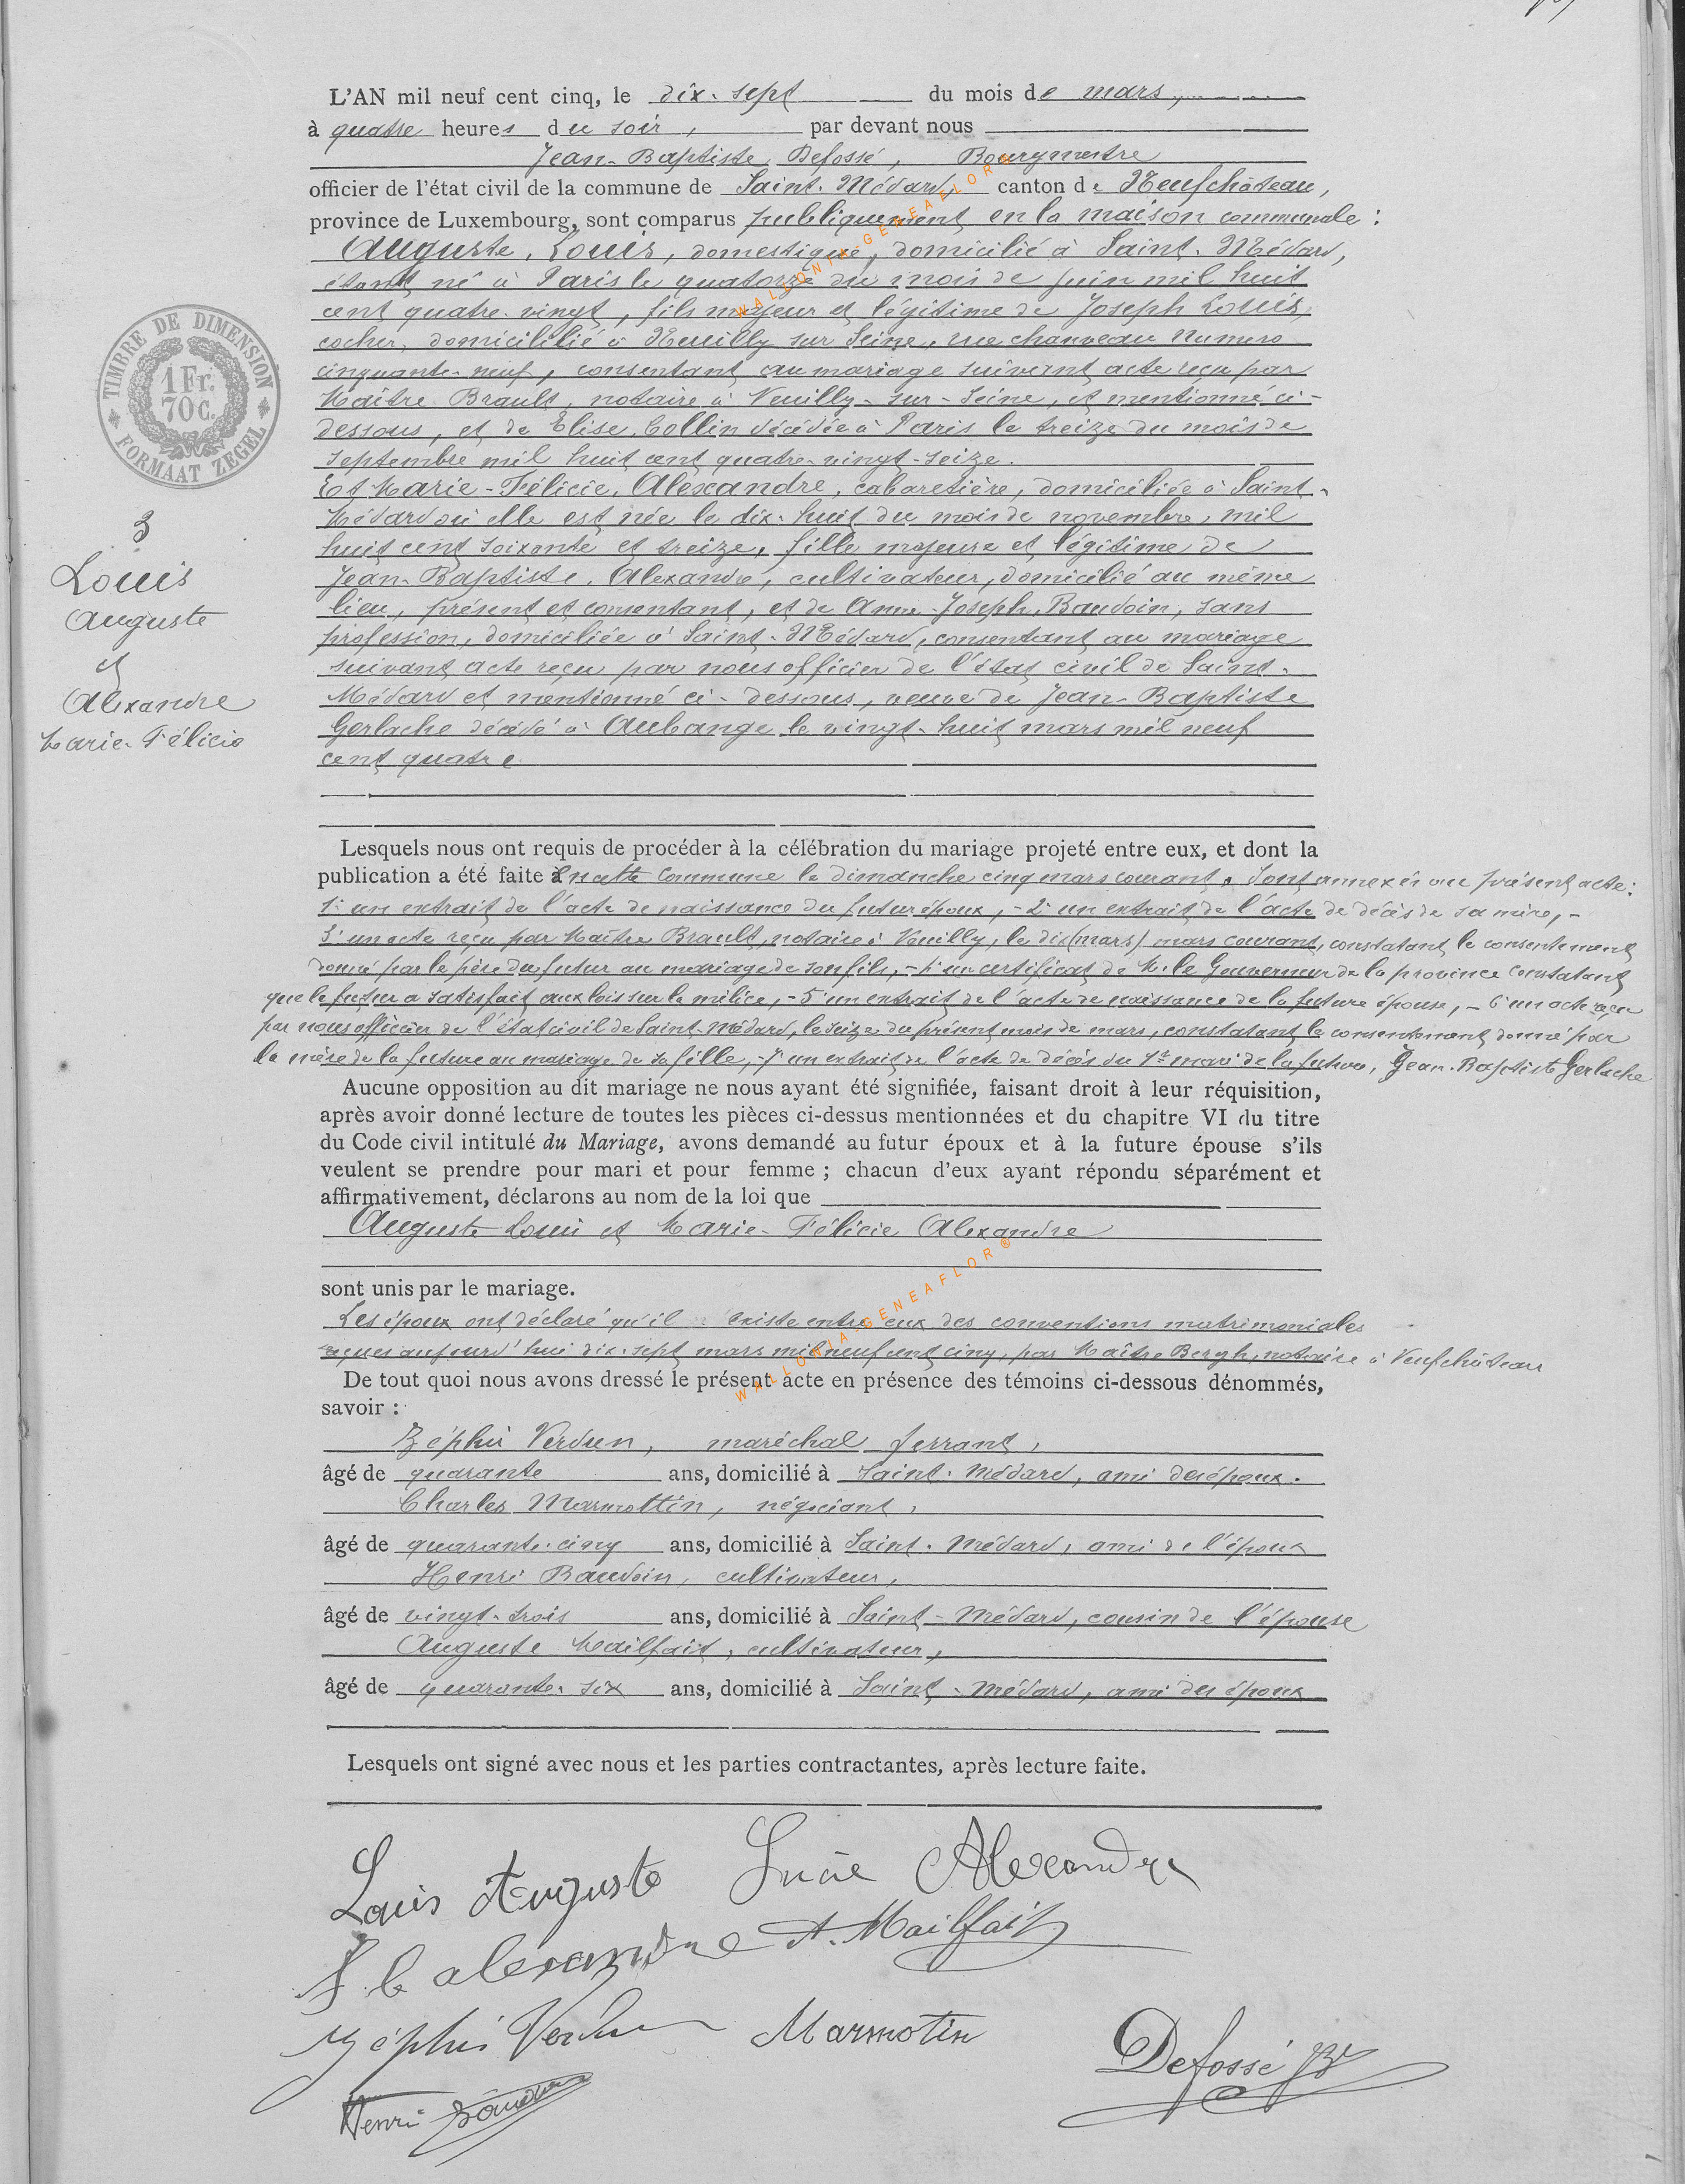 L'AN mil neuf cent cinq, le dix-sept du mois de mars,
à quatre heures du soir, par devant nous
Jean-Baptiste Defossé, Bourgmestre
officier de l'état civil de la commune de Saint-Médard, canton de Neufchâteau,
province de Luxembourg, sont comparus publiquement en la maison communale :
Auguste, Louis, domestique, domicilié à Saint-Médard,
étant né à Paris le quatorze du mois de juin mil huit
cent quatre-vingt, fils majeur et légitime de Joseph Louis,
cocher, domicililié à Neuilly sur Seine, rue chauveau numero
cinquante-neuf, consentant au mariage suivant acte reçu par
Maître Brault, notaire à Neuilly-sur-Seine, et mentionné ci-
dessous, et de Elise, Collin décédée à Paris le treize du mois de
septembre mil huit cent quatre-vingt-seize.
Et Marie-Félicie, Alexandre, cabaretière, domiciliée à Saint-
Médard où elle est née le dix-huit du mois de novembre, mil
huit cent soixante et treize, fille majeure et légitime de
Jean-Baptiste, Alexandre, cultivateur, domicilié au même
lieu, présent et consentant, et de Anne-Joseph, Baudoin, sans
profession, domiciliée à Saint-Médard, consentant au mariage
suivant acte reçu par nous officier de l'état civil de Saint-
Médard et mentionné ci-dessous, veuve de Jean-Baptiste
Gerlache décédé à Aubange le vingt-huit mars mil neuf
cent quatre
TIMBRE DE DIMENSION
1 Fr.
70 c.
FORMAAT ZEGEL
3
Louis
Auguste
et
Alexandre
Marie-Félicie
Lesquels nous ont requis de procéder à la célébration du mariage projeté entre eux, et dont la
publication a été faite en cette commune le dimanche cinq mars courant. Sont annexés au présent acte :
1° un extrait de l'acte de naissance du futur époux, - 2° un extrait de l'acte de décès de sa mère, -
3° un acte reçu par Maître Brault, notaire à Neuilly, le dix (mars) mars courant, constatant le consentement
donné par le père du futur au mariage de son fils, - 4° un certificat de M. le Gouverneur de la province constatant
que le futur a satisfait aux lois sur la milice, - 5° un extrait de l'acte de naissance de la future épouse, - 6° un acte reçu
par nous officier de l'état civil de Saint-Médard, le seize du présent mois de mars, constatant le consentement donné par
la mère de la future au mariage de sa fille, - 7° un extrait de l'acte de décès du 1er mari de la future, Jean-Baptiste Gerlache
Aucune opposition au dit mariage ne nous ayant été signifiée, faisant droit à leur réquisition,
après avoir donné lecture de toutes les pièces ci-dessus mentionnées et du chapitre VI du titre
du Code civil intitulé du Mariage, avons demandé au futur époux et à la future épouse s'ils
veulent se prendre pour mari et pour femme ; chacun d'eux ayant répondu séparément et
affirmativement, déclarons au nom de la loi que
Auguste Louis et Marie-Félicie Alexandre
sont unis par le mariage.
Les époux ont déclaré qu'il existe entre eux des conventions matrimoniales
reçues aujourd'hui dix-sept mars mil neuf cent cinq, par Maître Bergh, notaire à Neufchâteau
De tout quoi nous avons dressé le présent acte en présence des témoins ci-dessous dénommés,
savoir :
Zéphir Verdun, maréchal ferrant,
âgé de quarante ans, domicilié à Saint-Médard, ami des époux.
Charles Marmottin, négociant,
âgé de quarante-cinq ans, domicilié à Saint-Médard, ami de l'époux
Henri Baudoin, cultivateur,
âgé de vingt-trois ans, domicilié à Saint-Médard, cousin de l'épouse
Auguste Mailfait, cultivateur,
âgé de quarante-six ans, domicilié à Saint-Médard, ami des époux
Lesquels ont signé avec nous et les parties contractantes, après lecture faite.
Louis Auguste Alexandre
alexandre A. Mailfait
Zéphir Verdun Marmotin
Defossé
Henri Baudoin
WALLONIA-GENEAFLOR®
WALLONIA-GENEAFLOR®